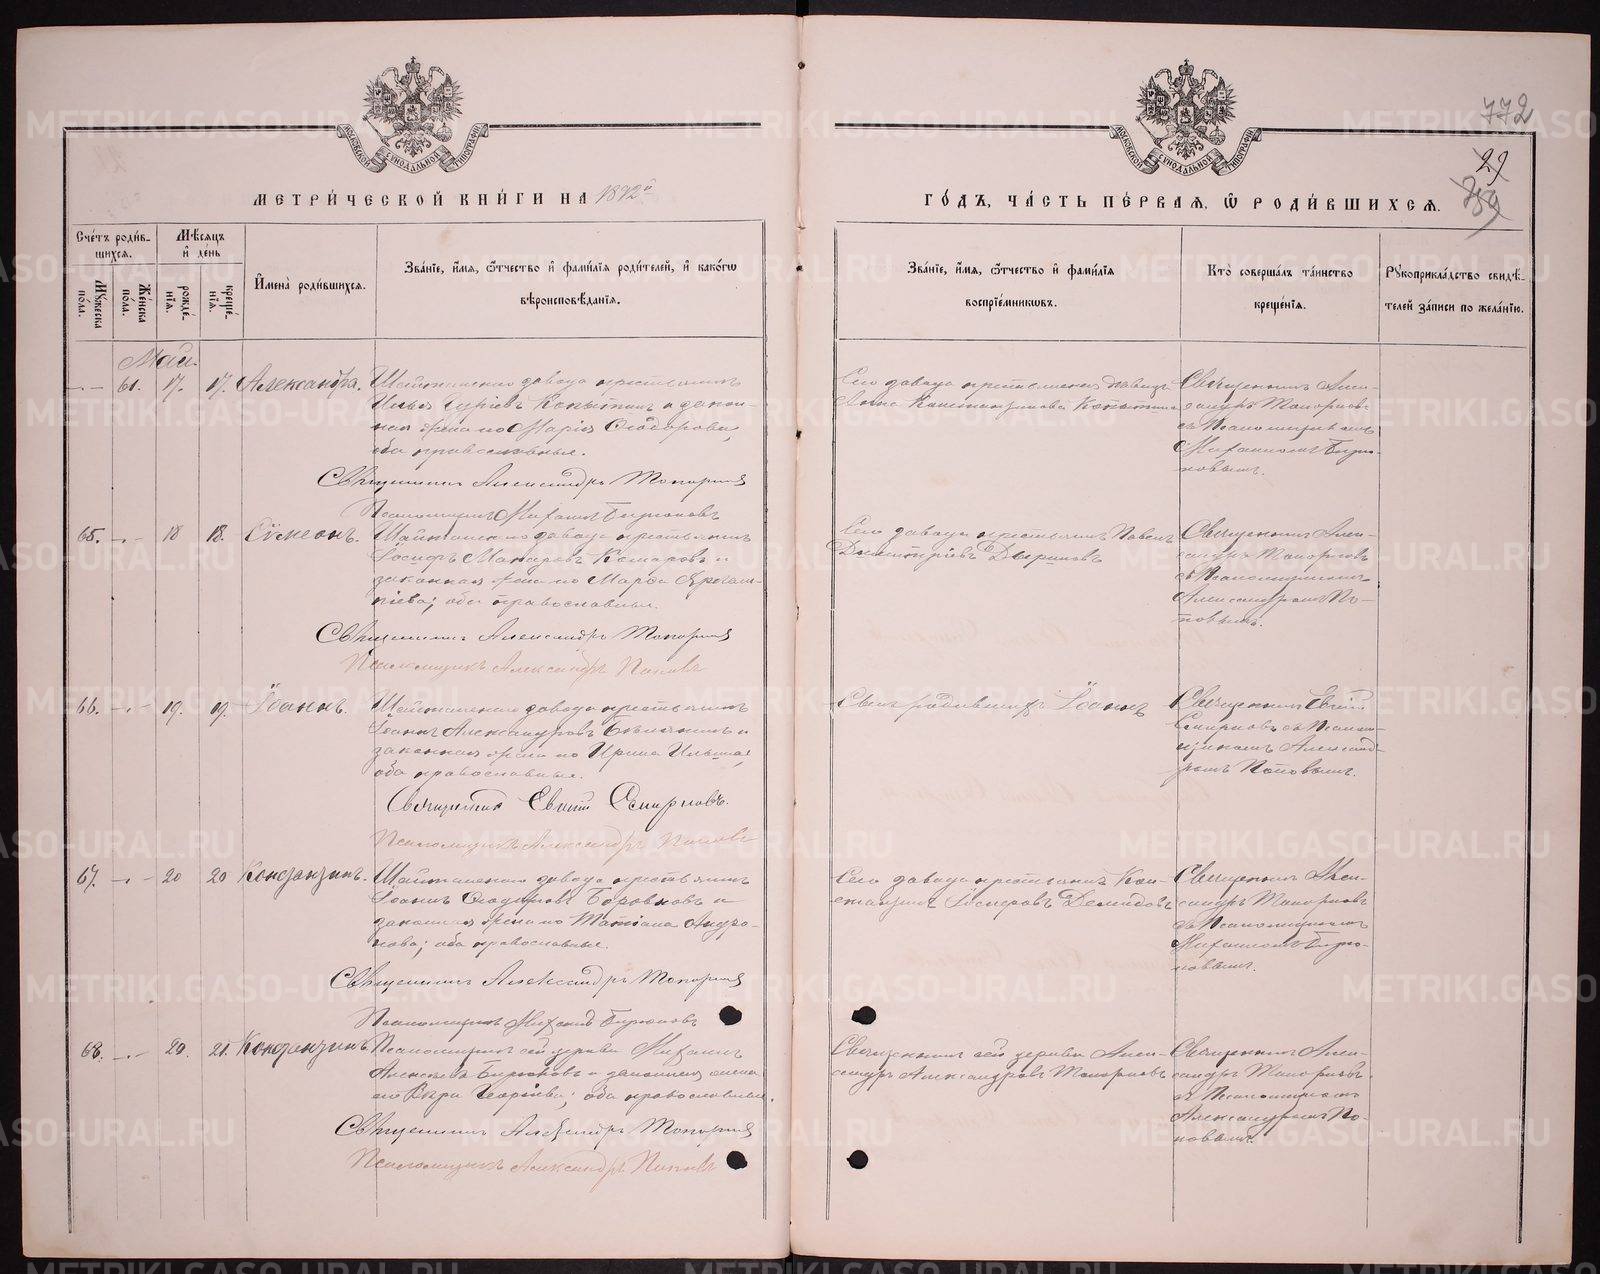 772
29
759
МОСКОВСКОЙ СѴНОДАЛЬНОЙ ТИПОГРАФІИ
МОСКОВСКОЙ СѴНОДАЛЬНОЙ ТИПОГРАФІИ
МЕТРИ́ЧЕСКОЙ КНИ́ГИ НА 1892й
ГО́ДЪ, ЧА́СТЬ ПЕ́РВАЯ, Ѡ РОДИ́ВШИХСЯ.
Сче́тъ роди́в-
шихся.
Мѣ́сяцъ
и҆ де́нь
Му́жеска
по́ла.
Же́нска
по́ла.
рожде́-
нія.
креще́-
нія.
И҆мена̀ роди́вшихся.
Зва́ніе, и҆́мя, ѻ҆́тчество и҆ фами́лія роди́телей, и҆ како́гѡ
вѣроисповѣ́данія.
Зва́ніе, и҆́мя, ѻ҆́тчество и҆ фами́лія
воспріе́мниковъ.
Кто̀ соверша́лъ та́инство
креще́нія.
Рꙋкоприкла́дство свидѣ́-
телей за́писи по жела́нію.
Май.
61. 17. 17. Александра.
Шайтанскаго завода крестьянинъ
Илья Гуріевъ Копытинъ и закон-
ная жена его Марія Сідорова,
оба православные.
Священникъ Александръ Топорковъ
Псаломщикъ Михаилъ Бирюковъ
Сего завода крестьянская дѣвица
Анна Константинова Копытина
Священникъ Алек-
сандръ Топорковъ
съ Псаломщикомъ
Михаиломъ Бирю-
ковымъ.
65. 18 18. Сѵмеонъ.
Шайтанскаго завода крестьянинъ
Іосифъ Макаровъ Комаровъ и
законная жена его Марѳа
оба православные.
Священникъ Александръ Топорковъ
Псаломщикъ Александръ Поповъ
Сего завода крестьянинъ Павелъ
Димитріевъ
Священникъ Алек-
сандръ Топорковъ
съ Псаломщикомъ
Александромъ По-
повымъ.
66. 19. 19. Іоаннъ.
Шайтанскаго завода крестьянинъ
Іоаннъ Александровъ и
законная жена его Ирина Ильина,
оба православные.
Священникъ Евгній Смирновъ.
Псаломщикъ Александръ Поповъ
Іоаннъ
Священникъ Евгній
Смирновъ съ Псалом-
щикомъ Александ-
ромъ Поповымъ.
67. 20 20 Константинъ.
Шайтанскаго завода крестьянинъ
Іоаннъ Боровковъ и
законная жена его Татіана Андро-
нова; оба православные.
Священникъ Александръ Топорковъ
Псаломщикъ Михаилъ Бирюковъ
Сего завода крестьянинъ Кон-
стантинъ Демидовъ
Священникъ Алек-
сандръ Топорковъ
съ Псаломщикомъ
Михаиломъ Бирю-
ковымъ.
68. 20. 21. Константинъ.
Псаломщикъ сей церкви Михаилъ
Алексѣевъ Бирюковъ и законная жена
его Вѣра Георгіева; оба православные.
Священникъ Александръ Топорковъ
Псаломщикъ Александръ Поповъ
Священникъ сей церкви Алек-
сандръ Александровъ Топорковъ
Священникъ Алек-
сандръ Топорковъ
съ Псаломщикомъ
Александромъ По-
повымъ.
METRIKI.GASO-URAL.RU